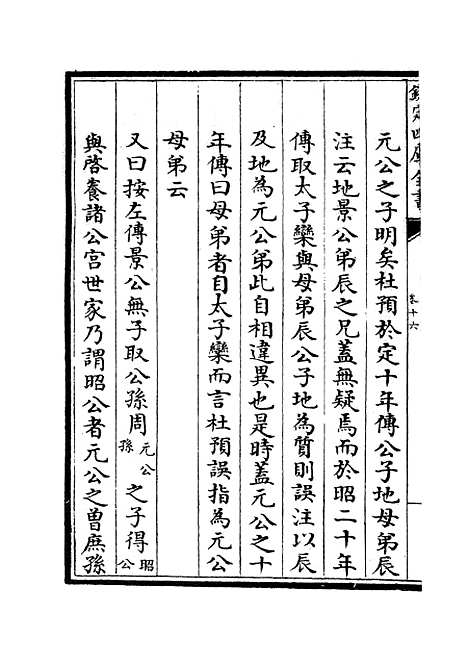 欽定四庫全書
卷十六
元公之子明矣杜預於定十年傳公子地母弟辰
注云地景公弟辰之兄蓋無疑焉而於昭二十年
傳取太子欒與母弟辰公子地為質則誤注以辰
及地為元公弟此自相違異也是時蓋元公之十
年傳曰母弟者自太子欒而言杜預誤指為元公
母弟云
又曰按左傳景公無子取公孫周元公孫之子得昭公
與啓養諸公宮世家乃謂昭公者元公之曽庶孫